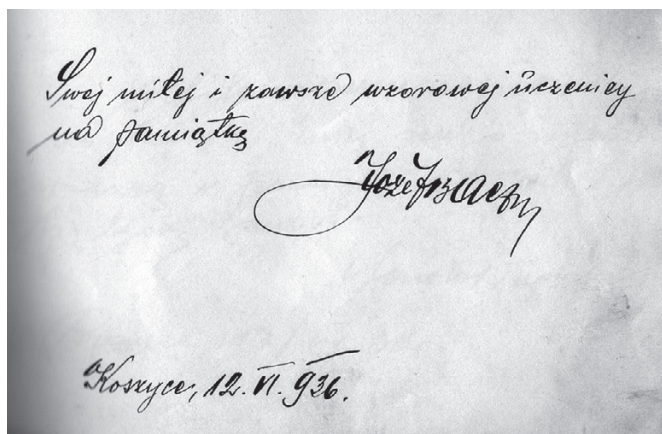 Swej miłej i zawsze wzorowej uczenicy
na pamiątkę
Józef
Koszyce, 12. VI. 936.